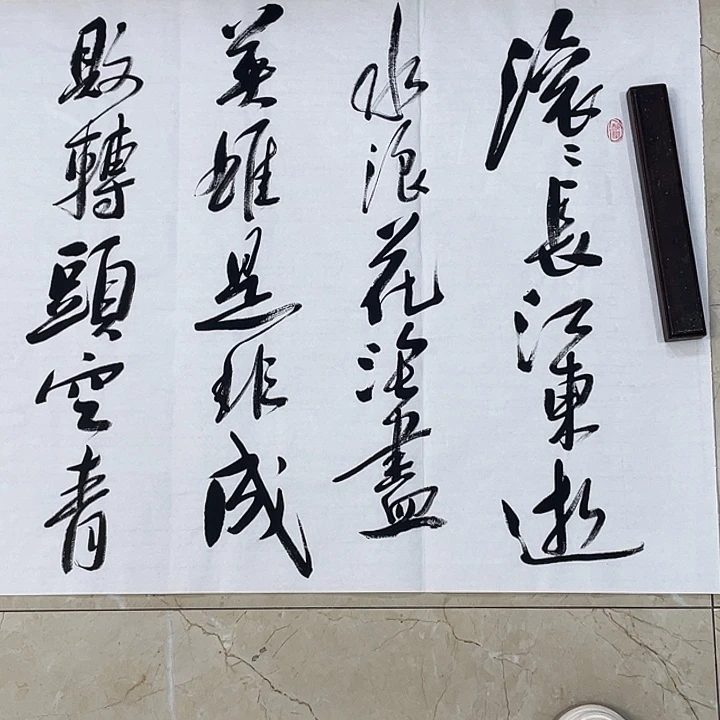 滚〻長江東逝
水浪花淘盡
英雄是非成
敗轉頭空青